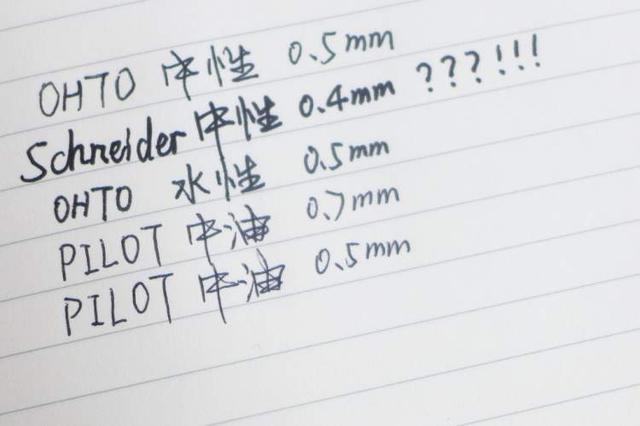 OHTO 中性 0.5mm
Schneider 中性 0.4mm ???!!!
OHTO 水性 0.5mm
PILOT 中油 0.7mm
PILOT 中油 0.5mm